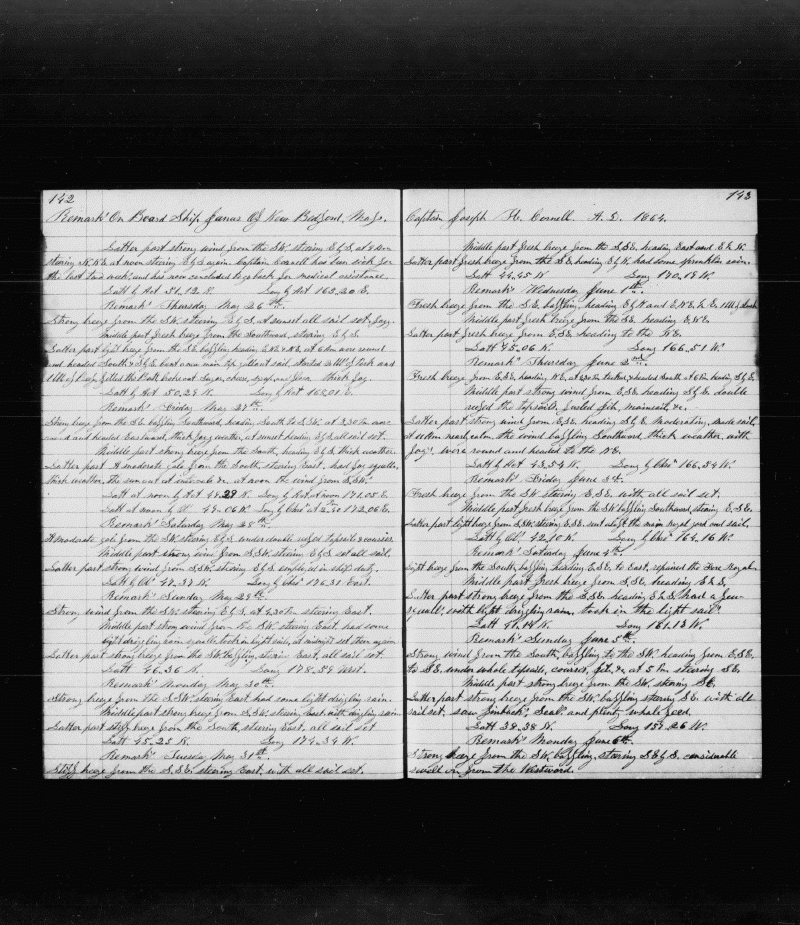 142
Remarks On Board Ship Janus Of New Bedford, Mass.
Latter part strong wind from the SW. steering E by S, at
steering at noon steering E by S again. Captain Cornell has been sick for
the last two weeks and has now concluded to go back for medical assistance
Latt by Act 51.12 N. Long by Act 165.20 E.
Remarks Thursday May 26th.
Strong breeze from the SW. steering E by S, at sunset all sail set, foggy.
Middle part fresh breeze from the Southward, steering E by S.
Latter part light breeze from the SE. baffling heading at 6 Am wore round
and headed South & S by E. bent a new main top gallant sail, started of pork and
1 bbl of filled the with Sugar, cheese, and flour. thick fog.
Latt by Act 50.28 N. Long by Act 169.01 E.
Remarks Friday May 27th.
Strong breeze from the SE. baffling Southward, heading South to S.SW. at 3.30 Pm wore
round and headed Eastward, thick foggy weather, at sunset heading E by S. all sail set.
Middle part strong breeze from the South, heading E by S. thick weather
Latter part A moderate gale from the South, steering East. had fog squalls,
thick weather, the sun out at intervals &c. at noon the wind from S.SW.
Latt at noon by Act 49.29 N. Long by Act. at noon 171.05 E.
Latt at noon by Ob. 49.06 N. Long by Chro at 172.06 E.
Remarks Saturday May 28th.
A moderate gale from the SW. steering E by S. under double reefed topsails & courses
Middle part strong wind from S.SW. steering E by S. set all sail.
Latter part strong wind from S.SW. steering E by S. employed in ships duty.
Latt by Ob. 47.37 N. Long by Chro 176.31 East.
Remarks Sunday May 29th.
Strong wind from the SW. steering E by S, at 4.30 Pm steering East.
Middle part strong wind from the SW. steering East. had some
light drizzling rain squalls, took in light sails, at midnight set them again
Latter part strong breeze from the SW. baffling, steering East, all sail set.
Latt 46.36 N. Long 178.39 West.
Remarks Monday May 30th.
Strong breeze from the S.SW. steering East had some light drizzling rain.
Middle part strong breeze from S.SW. steering East, with drizzling rain
Latter part stiff breeze from the South, steering East, all sail set
Latt 45.25 N. Long 174.34 W.
Remarks Tuesday May 31th.
Stiff breeze from the S.SE. steering East, with all sail set.
143
Captain Joseph H. Cornell A.D. 1864.
Middle part fresh breeze from the S.SE. heading East and E by N.
Latter part fresh breeze from the S.E. heading E by N. had some sprinkling rain.
Latt 44.45 N Long 170.19 W.
Remarks Wednesday June 1th.
Fresh breeze from the S.E. baffling, heading E by N and E.N.E.
Middle part fresh breeze from the S.E. heading E.N.E.
Latter part fresh breeze from E.SE. heading to the NE.
Latt 45.06 N. Long 166.51 W.
Remarks Thursday June 2nd.
Fresh breeze from E.SE. heading N.E. at 4.30 Pm tacked & headed South at 6 Pm heading S by E.
Middle part strong wind from E.SE. heading S by E. double
reefed the topsails, furled jib, mainsail, &c.
Latter part strong wind from E.SE. heading S by E. moderating, made sail,
at 11 Am nearly calm, the wind baffling Southward, thick weather, with
fog, wore round and headed to the NE.
Latt by Act 43.54 N. Long by Chro 166.34 W.
Remarks Friday June 3th.
Fresh breeze from the SW steering E.SE. with all sail set.
Middle part fresh breeze from the SW. baffling Southward, steering E.SE.
Latter part light breeze from S.SW. steering E.SE. sent aloft the main royal yard and sail.
Latt by Ob. 42.10 N. Long by Chro 164.16 W.
Remarks Saturday June 4th.
Light breeze from the South, baffling heading E.SE. to East, repaired the Fore Royal.
Middle part fresh breeze from S.SE. heading E by S.
Latter part strong breeze from the S.SE. heading E by S. had a few
squalls, with light drizzling rain, took in the light sails
Latt 41.14 N Long 161.13 W.
Remarks Sunday June 5th.
Strong wind from the South, baffling to the SW. heading from E.SE.
to S.E. under whole topsails, courses, jib, &c, at 5 Pm steering SE.
Middle part strong breeze from the SW. steering SE.
Latter part strong breeze from the SW. baffling steering SE. with all
sail set. saw finbacks, Seals and plenty whale feed.
Latt 38.38 N. Long 157.26 W.
Remarks Monday June 6th.
Strong breeze from the SW. baffling, steering S.E by S. considerable
swell on from the Westward.